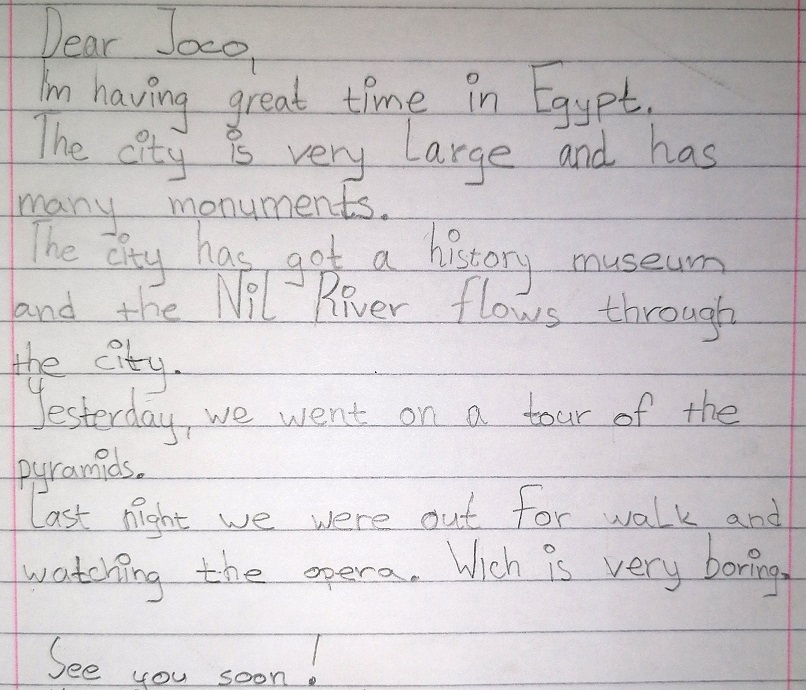 Dear Joco,
I'm having great time in Egypt.
The city is very large and has
many monuments.
The city has got a history museum
and the Nil River flows through
the city.
Yesterday, we went on a tour of the
pyramids.
Last night we were out for walk and
watching the opera. Wich is very boring.
See you soon!